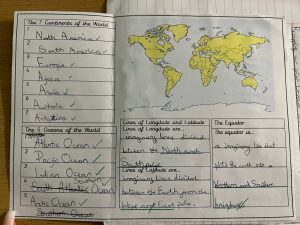 The 7 Continents of the World
1 North America
2 South America
3 Europe
4 Africa
5 Asia
6
7
The 5 Oceans of the World
1 Atlantic Ocean
2 Pacific Ocean
3 Indian Ocean
Southern
4 Ocean
5 Arctic Ocean
Southern Ocean
Lines of Longitude and Latitude
Lines of Longitude are
imaginary lines divided
the North and
South pole
Lines of Latitude are
imaginary lines divided
between the Earth from the
West and East pole.
The Equator
The equator is
a imaginary line that
the earth into
Northern and Southern